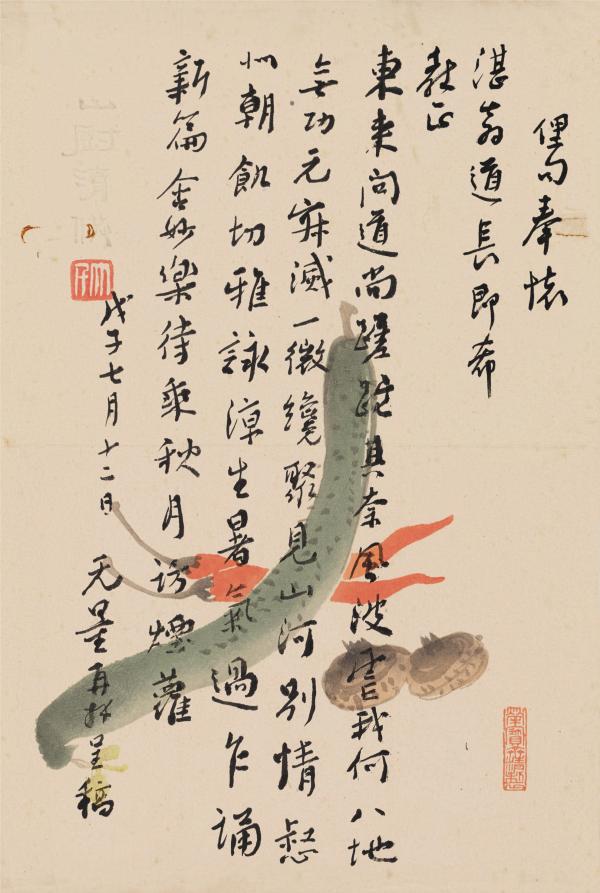 俚句奉懷
湛翁道長即希
教正
東來問道尚蹉跎其奈風波虐我何八地
無功元寂滅一微纔聚見山河別情惄
似朝飢切雅詠涼生暑氣過乍誦
新篇含妙樂待乘秋月訪煙蘿
戊子七月十二日 无量再拜呈稿